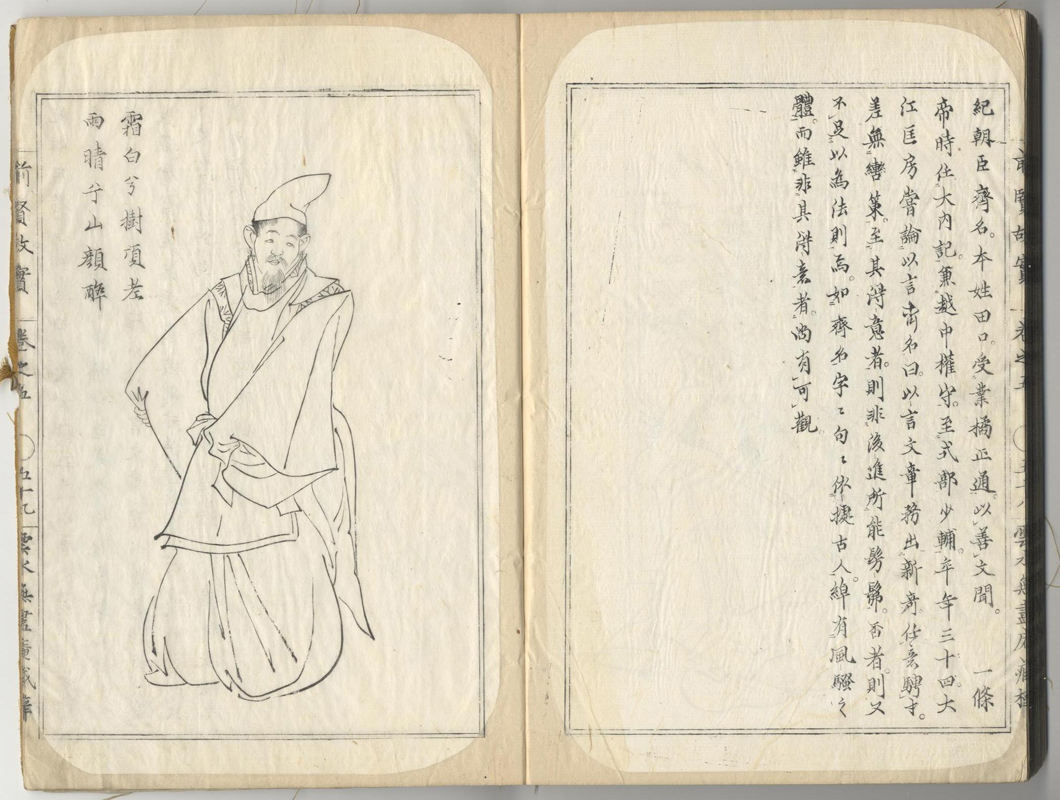 紀朝臣齊名。本姓田口。受業橘正通。以善文聞。 一條
帝時仕大内記。兼越中權守。至式部少輔。卒年三十四。大
江匡房嘗論以言齊名曰。以言文章務出新奇。任意騁才。
差無轡策。至其得意者。則非後進所能髣髴。否者。則又
不足以為法則焉。如齊名字〻句〻。依據古人。綽有風騷之
體。而雖非其得意者。尚有可觀。
前賢故實 卷之五 雲水無盡庵藏
霜白兮樹頂老
雨晴兮山顏醉
前賢故實 卷之五 〇 五十九 雲水無盡庵藏